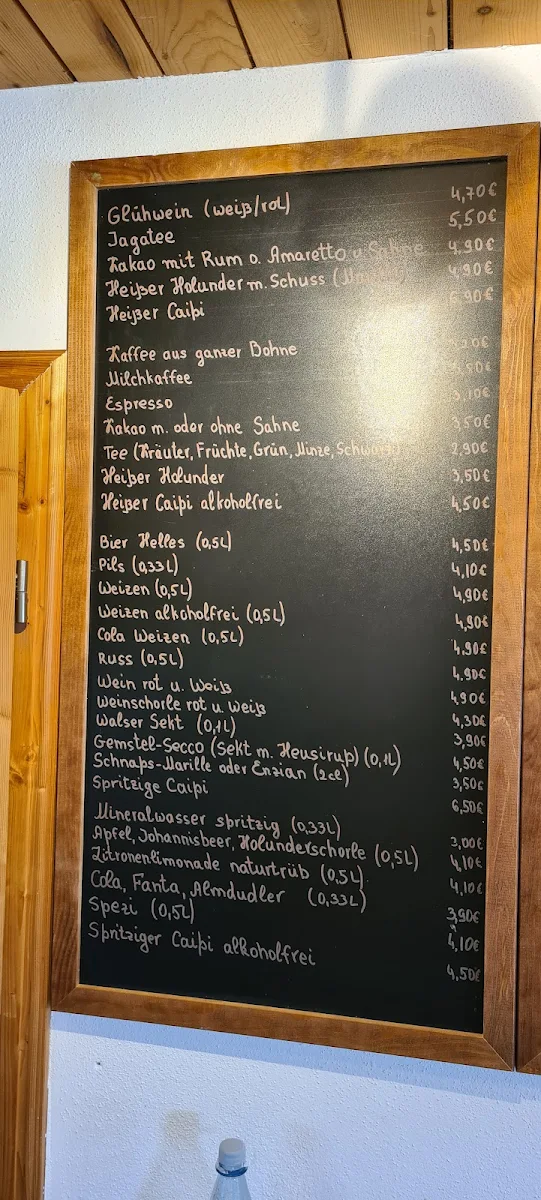 Glühwein (weiß/rot) 4,70€
Jagatee 5,50€
Kakao mit Rum o. Amaretto u Sahne 4,90€
Heißer Holunder m. Schuss 4,90€
Heißer Caipi 6,90€
Kaffee aus ganzer Bohne
Milchkaffee
Espresso 3,10€
Kakao m. oder ohne Sahne 3,50€
Tee (Kräuter, Früchte, Grün, Minze, Schwarz) 2,90€
Heißer Holunder 3,50€
Heißer Caipi alkoholfrei 4,50€
Bier Helles (0,5L) 4,50€
Pils (0,33L) 4,10€
Weizen (0,5L) 4,90€
Weizen alkoholfrei (0,5L) 4,90€
Cola Weizen (0,5L) 4,90€
Russ (0,5L) 4,90€
Wein rot u. Weiß 4,90€
Weinschorle rot u. weiß 4,30€
Walser Sekt (0,1L) 3,90€
Gemstel-Secco (Sekt m. Heusirup) (0,1L) 4,50€
Schnaps-Marille oder Enzian (2cl) 3,50€
Spritzige Caipi 6,50€
Mineralwasser spritzig (0,33L) 3,00€
Apfel, Johannisbeer, Holunderschorle (0,5L) 4,10€
Zitronenlimonade naturtrüb (0,5L) 4,10€
Cola, Fanta, Almdudler (0,33L) 3,90€
Spezi (0,5L) 4,10€
Spritziger Caipi alkoholfrei 4,50€